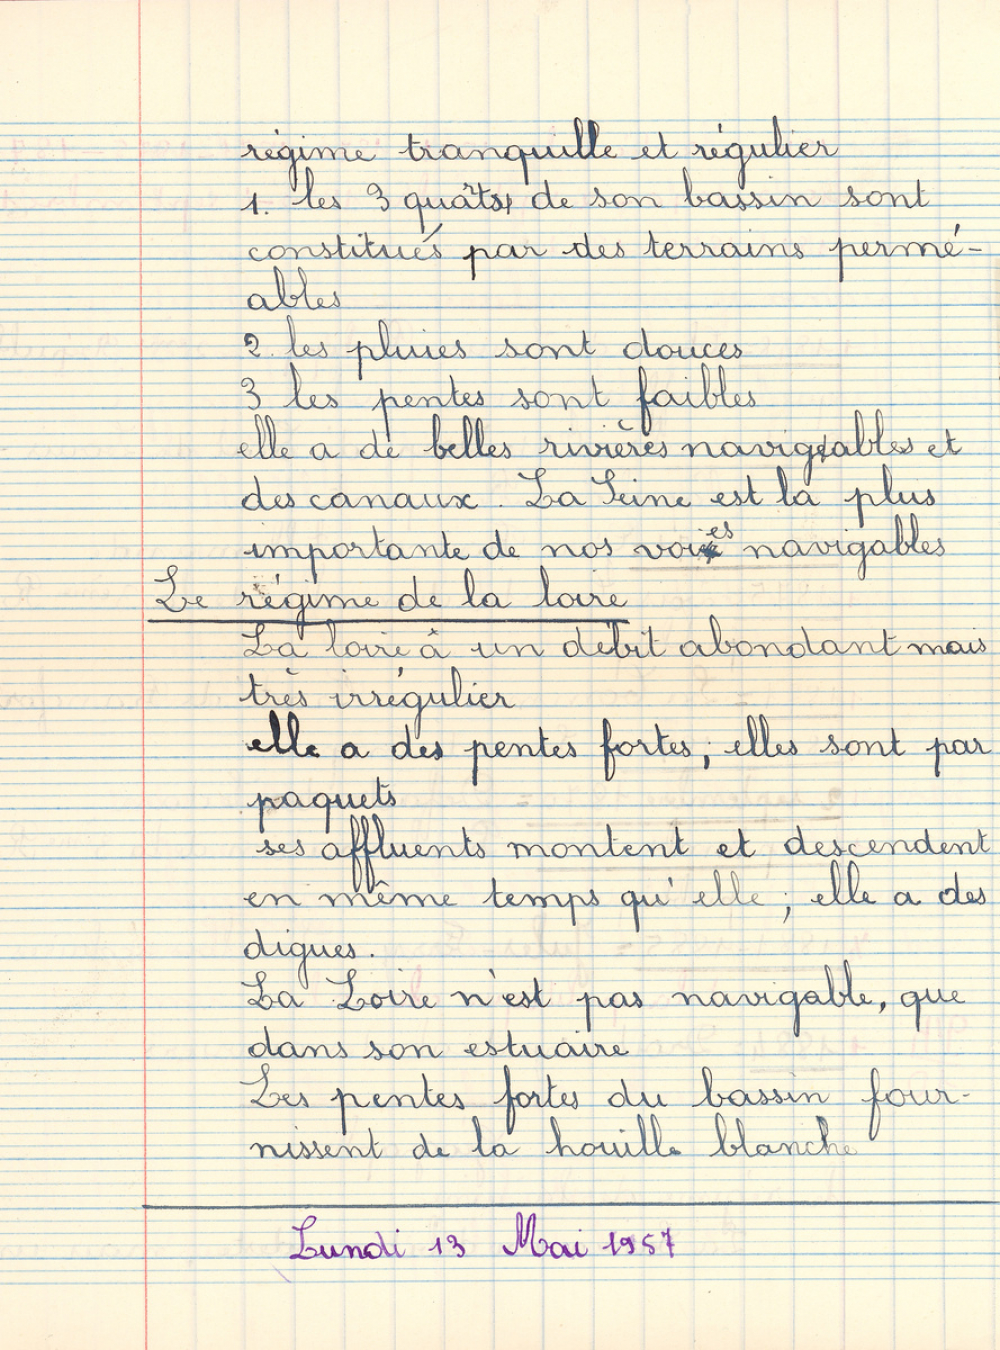 régime tranquille et régulier
1. les 3 quarts de son bassin sont
constitués par des terrains permé-
ables
2. les pluies sont douces
3 les pentes sont faibles
elle a de belles rivières navigables et
des canaux. La Seine est la plus
importante de nos voies navigables
Le régime de la loire
La loire à un débit abondant mais
très irrégulier
elle a des pentes fortes, elles sont par
paquets
ses affluents montent et descendent
en même temps qu'elle ; elle a des
digues.
La Loire n'est pas navigable, que
dans son estuaire
Les pentes fortes du bassin four-
nissent de la houille blanche
Lundi 13 Mai 1957